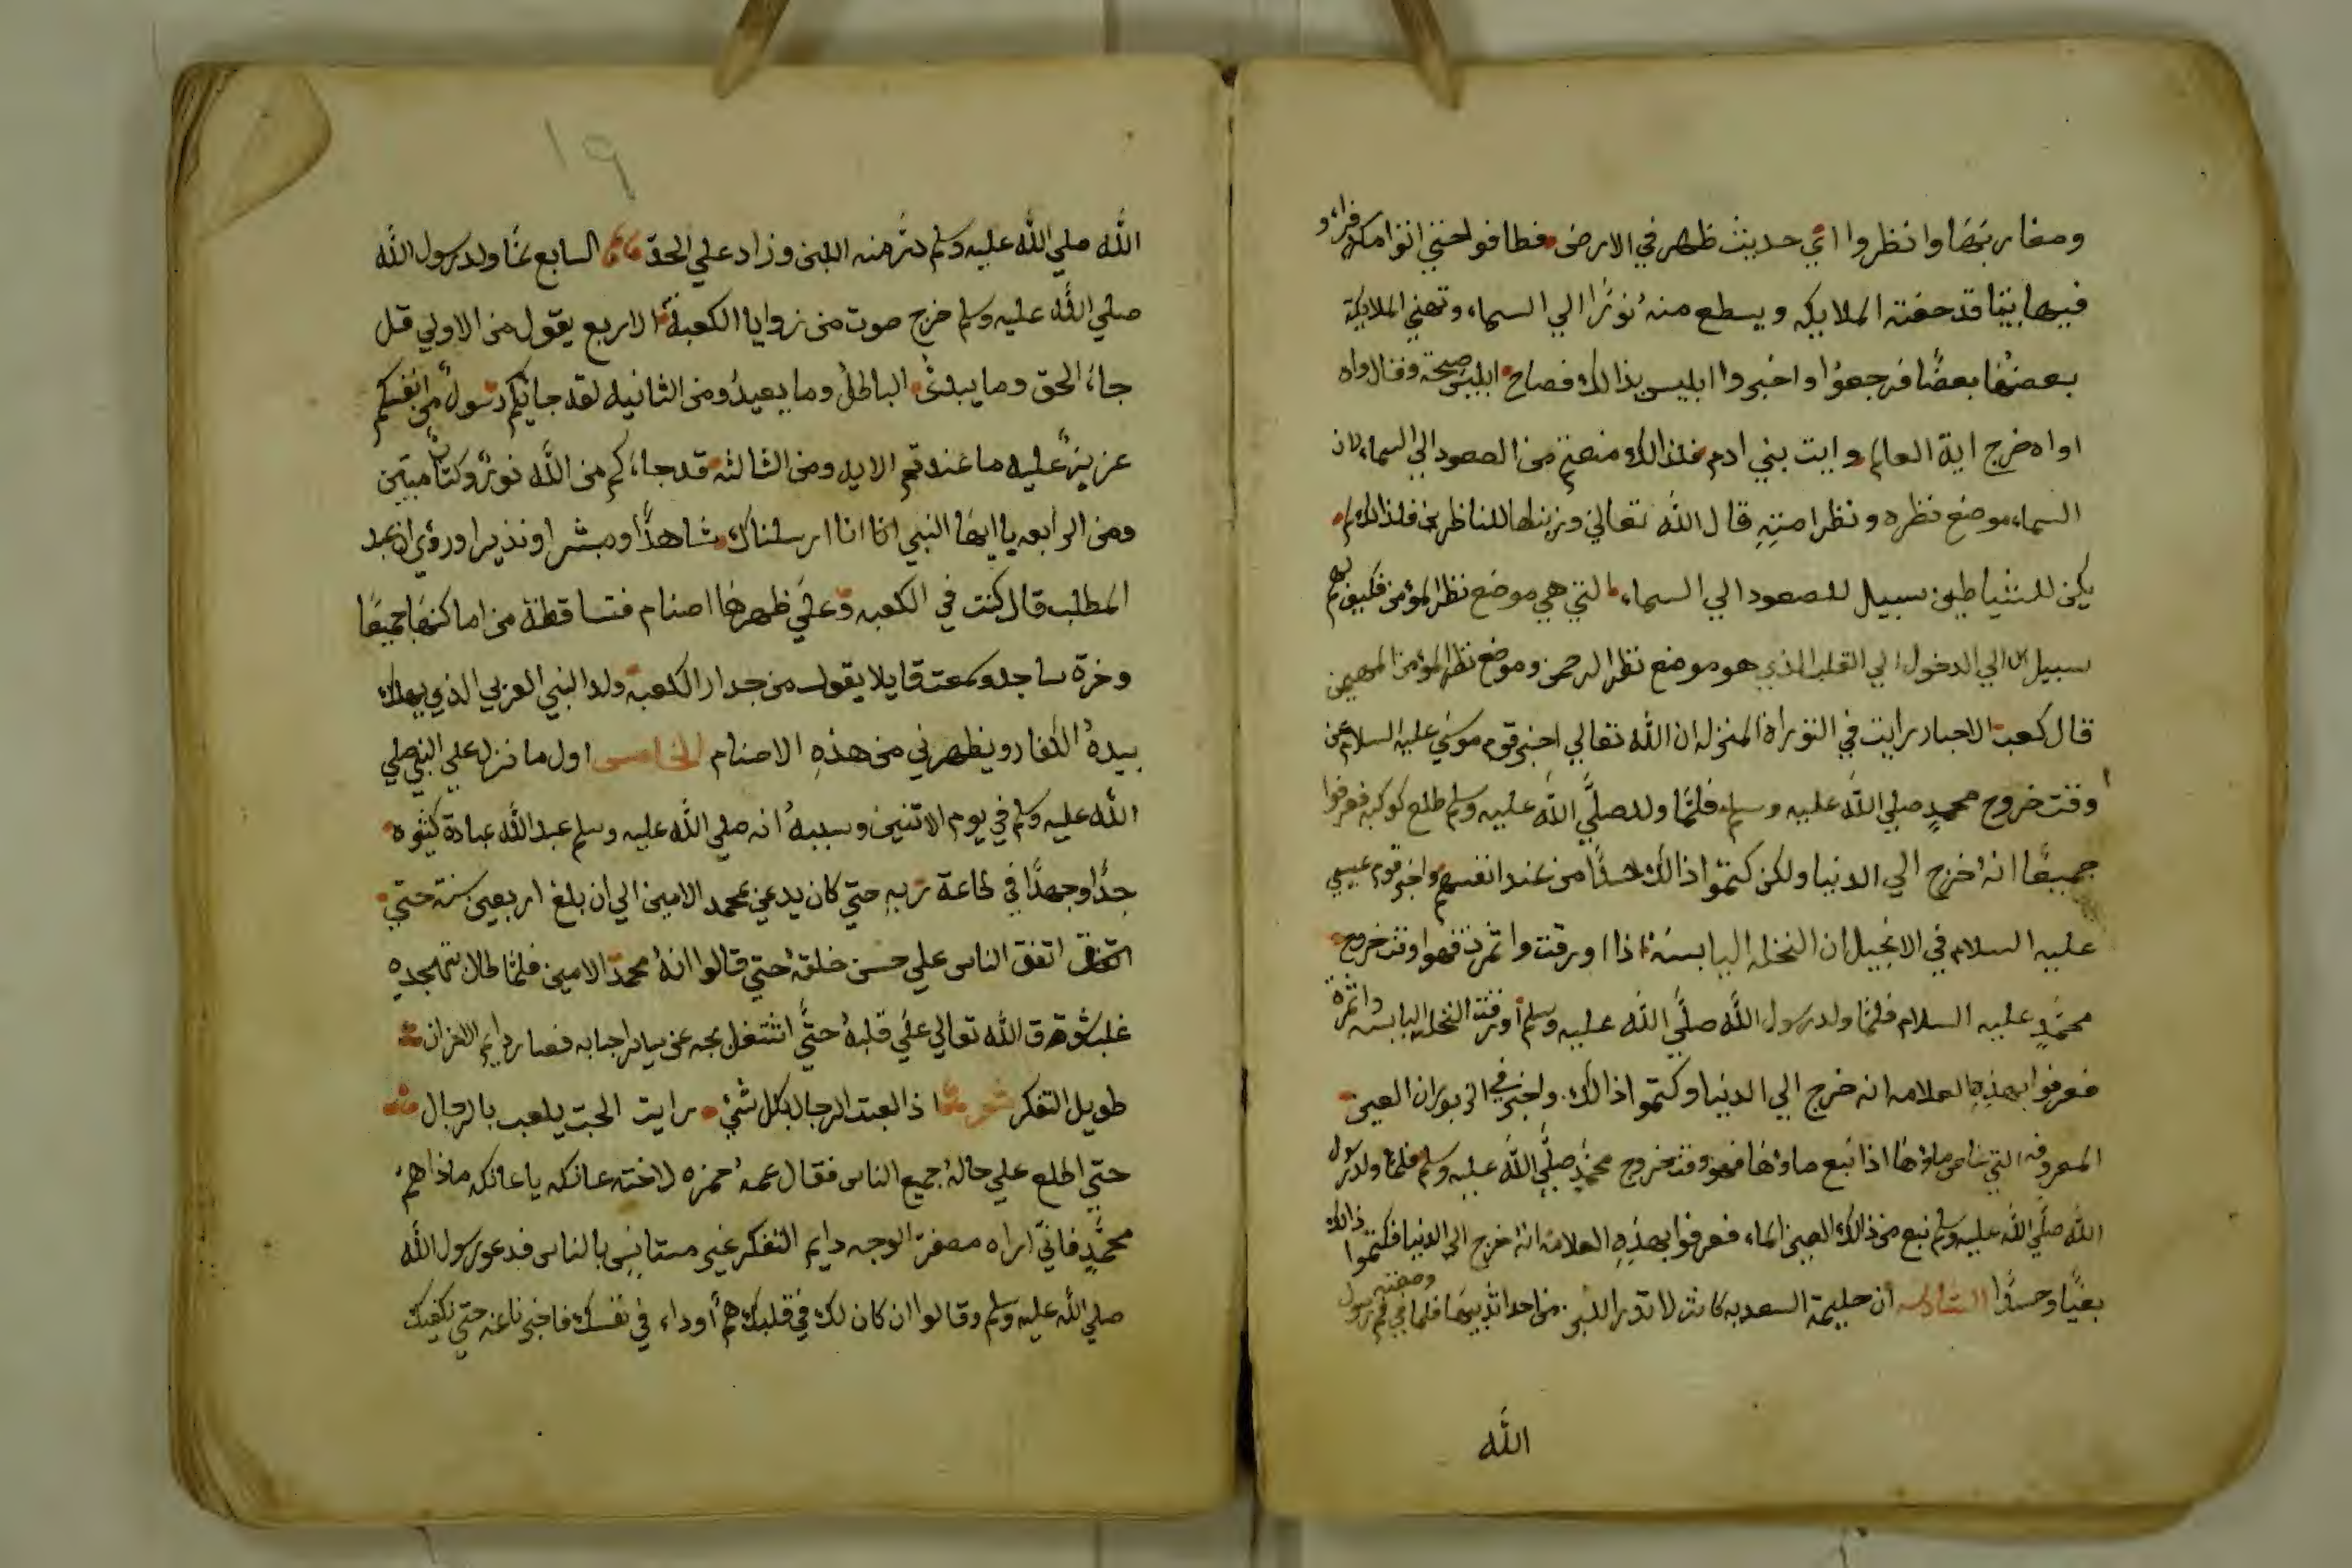 ومغاربها وانظروا اي حديث ظهر في الارض فطافوا حتي اتوا مكه فراءو
فيها بيتا قد حفته الملايكه ويسطع منه نورا الي السماء وتهني الملايكة
بعضها بعضا فرجعوا واخبروا ابليس بذالك فصاح ابليس صيحة وقال واه
اواه خرج اية العالم وايت بني ادم فلذالك منعتم من الصعود الي السماء لان
السماء موضع نظره ونظر امته قال الله تعالي وزيناها للناظرين فلذالك لم
يكن للشياطين سبيل للصعود الي السماء التي هي موضع نظر المؤمن فكيف لهم
سبيل الي الدخول الي القلب الذي هو موضع نظر الرحمن وموضع نظر المؤمن المهيمن
قال كعب الاحبار رايت في التوراة المنزله ان الله تعالي اخبر قوم موسي عليه السلام عن
وقت خروج محمد صلي الله عليه وسلم فلما ولد صلي الله عليه وسلم طلع كوكبه فعرفوا
جميعا انه خرج الي الدنيا ولكن كتموا ذالك حسدا من عند انفسهم واخبر قوم عيسي
عليه السلام في الانجيل ان النخله اليابسه اذا اورقت واثمرت فهو اوقت خروج
محمد عليه السلام فلما ولد رسول الله صلي الله عليه وسلم أورقت النخله اليابسه واثمرة
فعرفوا بهذه العلامه انه خرج الي الدنيا وكتموا ذالك واخبر في الزبور ان العين
المعروفه التي غاص ماؤها اذا نبع ماؤها فهو وقت خروج محمد صلي الله عليه وسلم فلما ولد رسول
الله صلي الله عليه وسلم نبع من ذالك العين الماء فعرفوا بهذه العلامه انه خرج الي الدنيا فكتموا ذالك
بغيا وحسدا السادس ان حليمة السعديه كانت لا تدر اللبن من احد ثدييها فلما في فم رسول
الله
١٩
الله صلي الله عليه وسلم در منه اللبن وزاد علي الحد السابع لما ولد رسول الله
صلي الله عليه وسلم خرج صوت من زوايا الكعبة الاربع يقول من الاولي قل
جاء الحق وما يبدئ الباطل وما يعيد ومن الثانيه لقد جائكم رسول من انفسكم
عزيز عليه ما عندتم الايه ومن الثالثه قد جاءكم من الله نور وكتاب مبين
ومن الرابعه يا ايها النبي انا ارسلناك شاهدا ومبشرا ونذيرا وروي ان عبد
المطلب قال كنت في الكعبه وعلي ظهرها اصنام فتساقطة من اماكنها جميعا
وخرة ساجد وسمعت قايلا يقول من جدار الكعبه ولد النبي العربي الذي يهلك
بيده الكفار ويطهرني من هذه الاصنام الخامس اول ما نزل علي النبي صلي
الله عليه وسلم في يوم الاتنين وسببه انه صلي الله عليه وسلم عبد الله عبادة كثيره
جدا وجهدا في طاعة ربه حتي كان يدعي محمد الامين الي ان بلغ اربعين سنة حتي
اتفق الناس علي حسن خلقه حتي قالوا انه محمد الامين فلما طال تهجده
غلب شوق الله تعالي علي قلبه حتي اشتغل بحبه عن ساير احبابه فصار دايم الاحزان
طويل التفكر شعر اذا لعبت الرجال بكل شيء رايت الحب يلعب بالرجال
حتي اطلع علي حاله جميع الناس فقال عمه حمزه لاخته عاتكه يا عاتكه ماذا هم
محمد فاني اراه مصفر الوجه دايم التفكر غير مستانس بالناس فدعو رسول الله
صلي الله عليه وسلم وقالوا ان كان لك في قلبك هم أوداء في نفسك فاخبرنا عنه حتي نكفيك